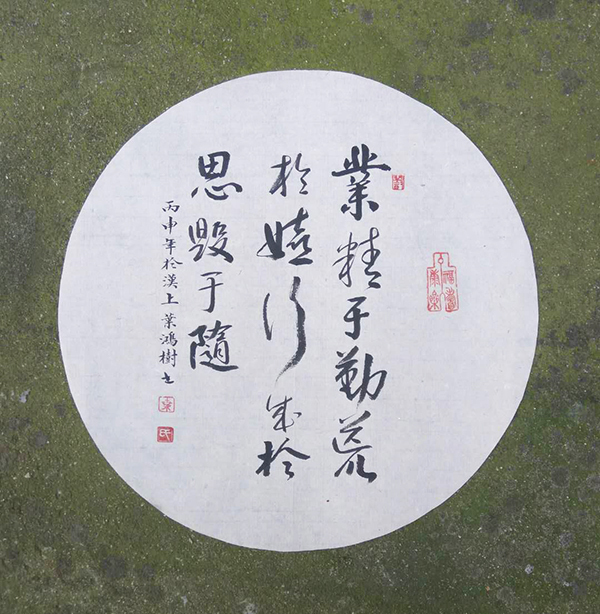 業精于勤荒
於嬉行成於
思毁于隨
丙申年於漢上葉鴻樹书